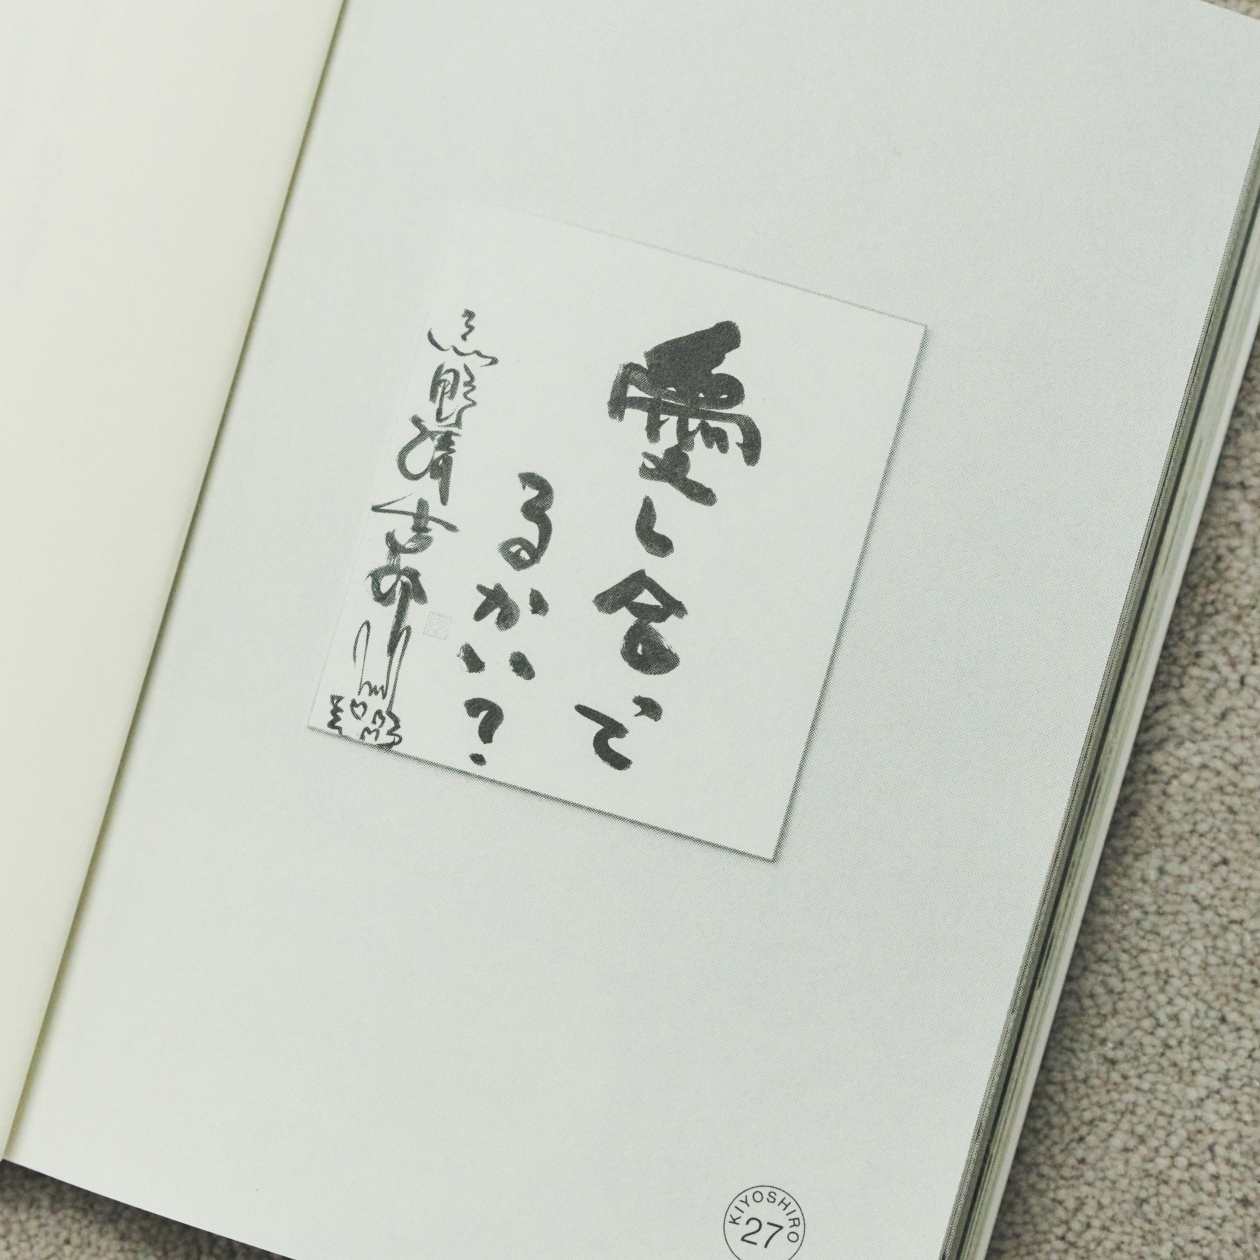 愛し合って
るかい?
忌野清志郎
KIYOSHIRO
27